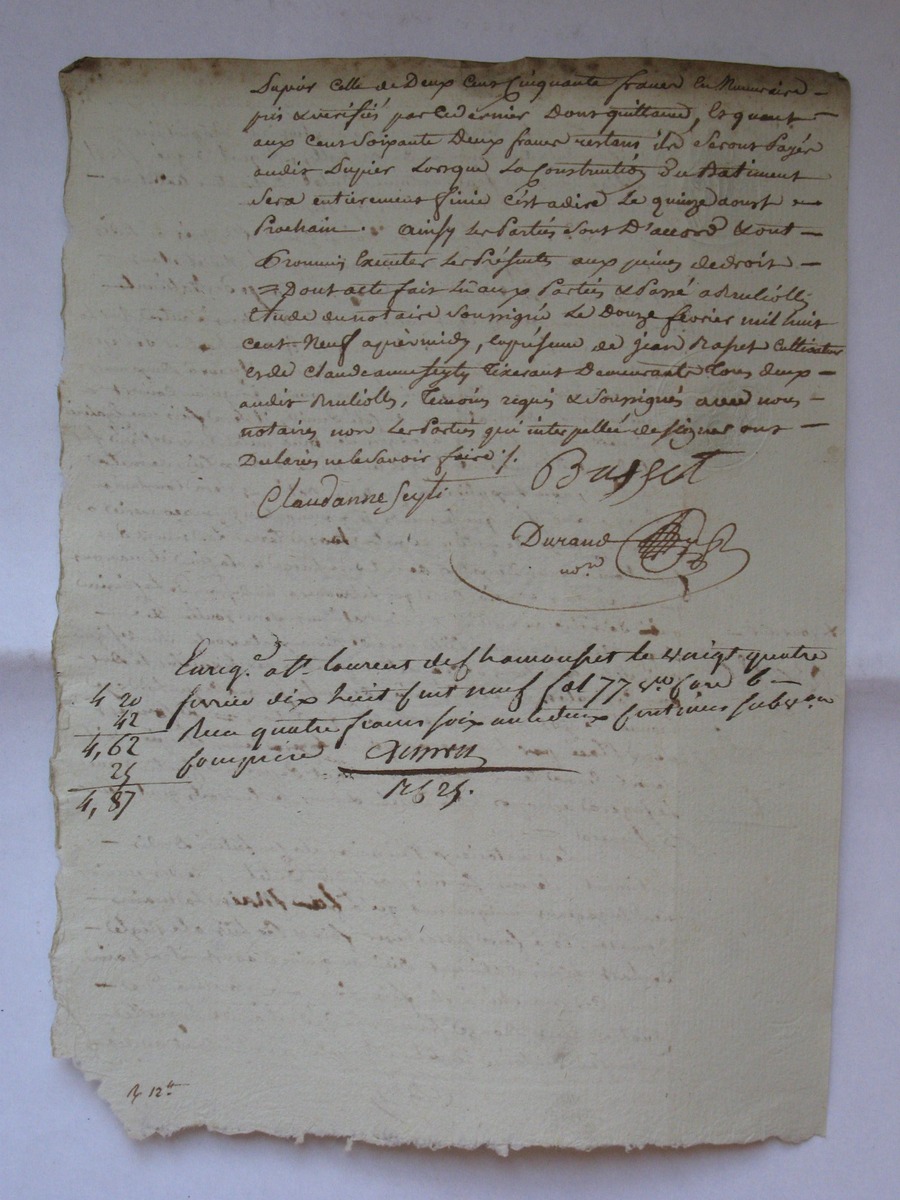 Dupier celle de Deux Cent Cinquante francs En Numeraire
pris & vérifiés par Ce dernier Dont quittance, Et quant
aux Cent Soixante Deux francs restans ils Seront Payés
audit Dupier Lorsque La Construction du Batiment
Sera entièrement finie C'est adire Le quinze aoust
Prochain. ainsy Les Parties Sont D'accord & ont
Promis Executer Les Présentes aux peines de droit
= Dont acte fait Lû aux Parties & Passé a
Etude du notaire Soussigné Le Douze février mil huit
cent Neuf après midy, En présence de jean Cultivateur
et de Claudeanne Seyty Tixerant Demeurants Tous deux
audit, Temoins requis & Soussignés avec nous
notaires non Les Parties qui interpellées de signer ont
Déclarés ne le Savoir faire /.
Claudanne Seyti
Durand
no.re
Enreg.é a S.t laurent de le vingt quatre
fevrier dix huit cent neuf fol 77 v.o case 6
4 20
Reçu quatre francs soixante deux centimes subv.on
42
4,62
comprise
25
4,87
12.tt